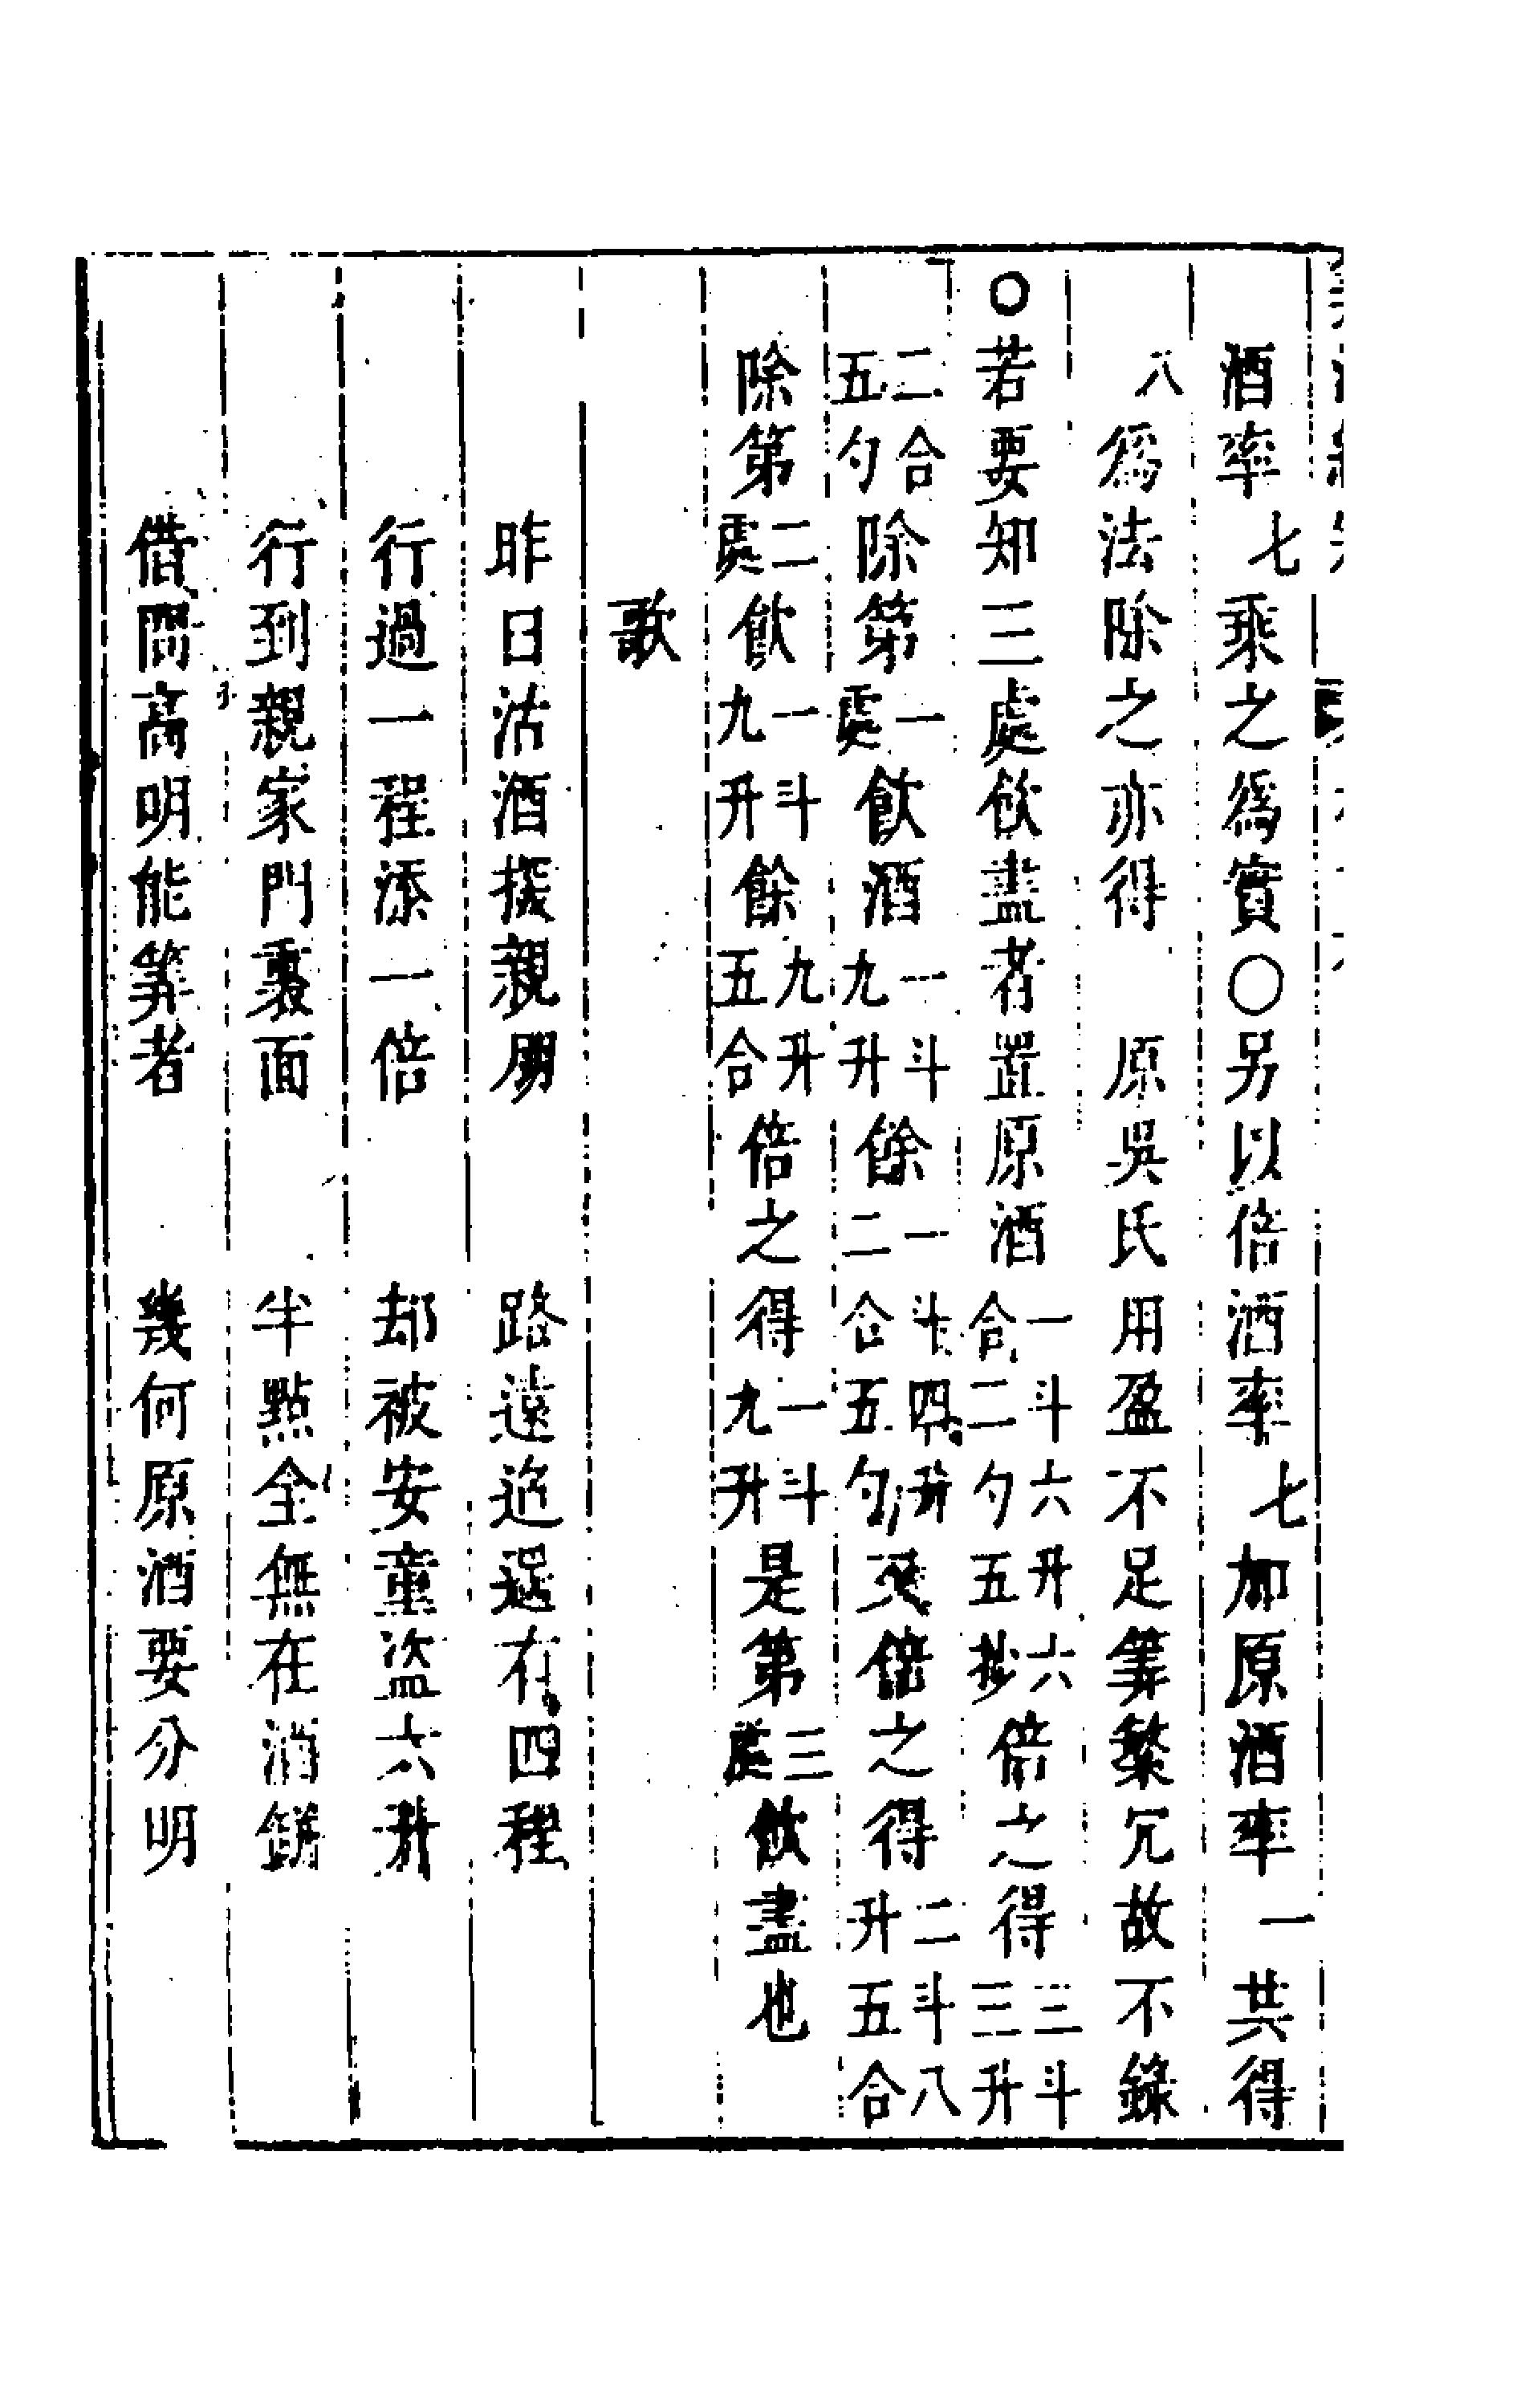 酒率七乘之爲實○另以倍酒率七加原酒率一共得
八爲法除之亦得　原吳氏用盈不足筭繁冗故不錄
○若要知三處飲盡者置原酒一斗六升六合二勺五抄倍之得三斗三升
二合五勺除第一處飲酒一斗九升餘一斗四升二合五勺又倍之得二斗八升五合
除第二處飲一斗九升餘九升五合倍之得一斗九升是第三處飲盡也
歌
昨日沽酒探親朋　路遠迢遥有四程
行過一程添一倍　却被安童盜六升
行到親家門裏面　半點全無在酒缾
借問高明能筭者　幾何原酒要分明